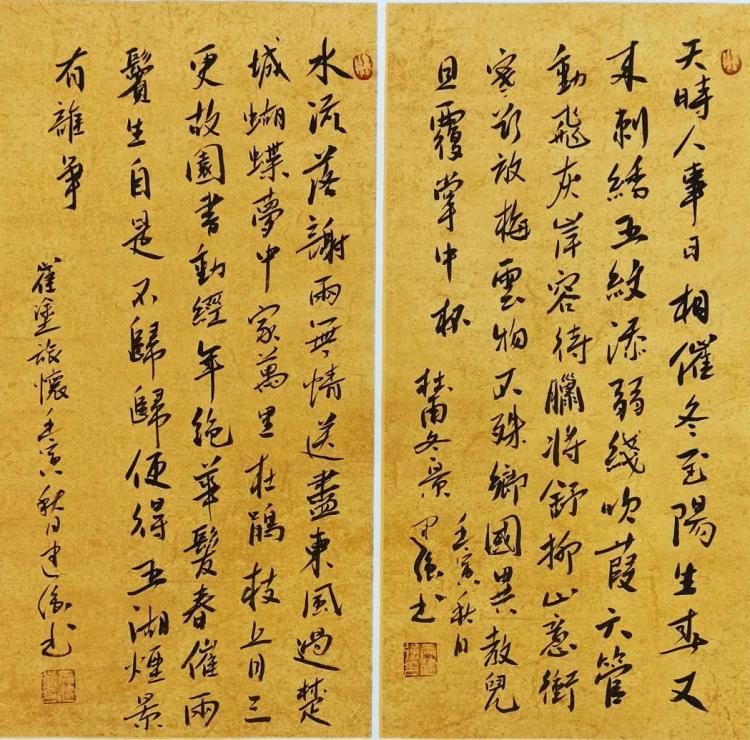 天時人事日相催冬至陽生春又
来刺繡五紋添弱綫吹葭六管
動飛灰岸容待臘將舒柳山意衝
寒欲放梅雲物不殊鄉國異教兒
且覆掌中杯
杜甫冬景
壬寅秋日
书
水流落謝兩無情送盡東風過楚
城蝴蝶夢中家萬里杜鵑枝上月三
更故園書動經年絶華髮春催兩
鬢生自是不歸歸便得五湖煙景
有誰争
崔塗旅懷壬寅秋日书